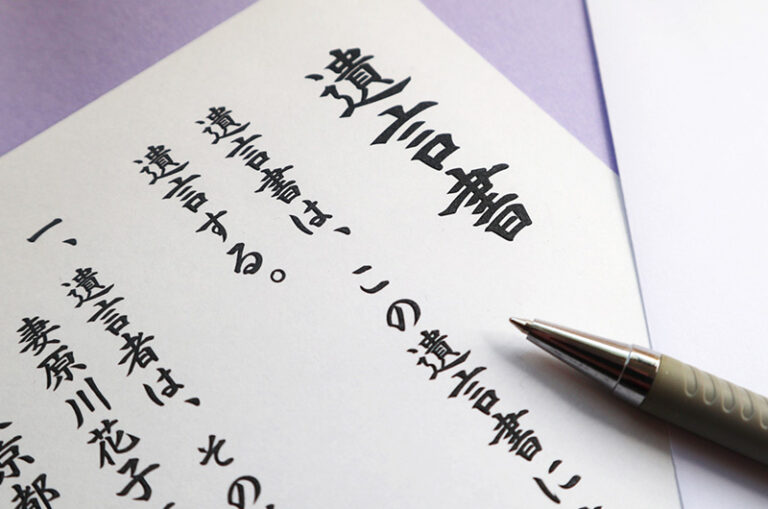 遺言書
遺言書は、この遺言書に
遺言する。
一、遺言者は、その
妻原川花子
京都